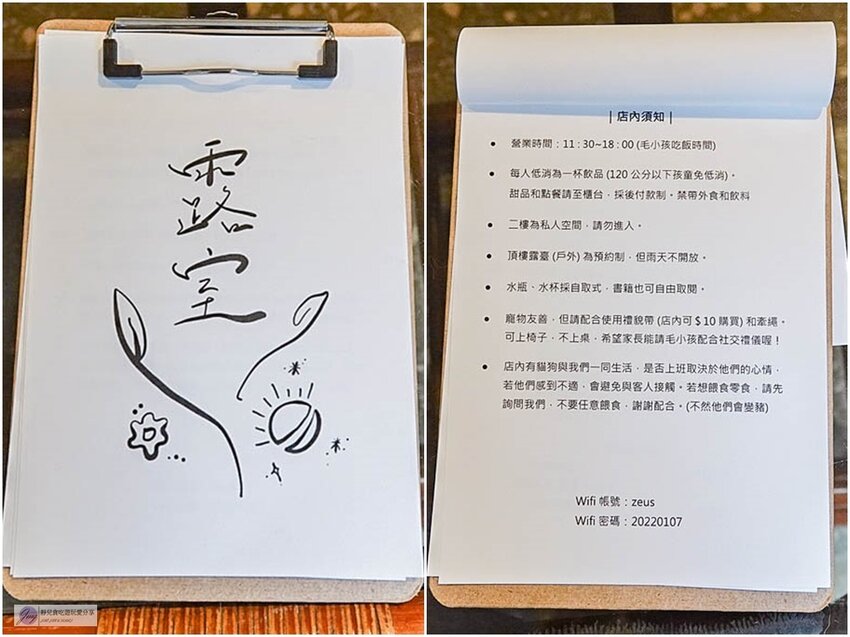 露室
｜店內須知｜
• 營業時間：11：30~18：00 (毛小孩吃飯時間)
• 每人低消為一杯飲品 (120 公分以下孩童免低消)。
甜品和點餐請至櫃台，採後付款制。禁帶外食和飲料
• 二樓為私人空間，請勿進入。
• 頂樓露臺 (戶外) 為預約制，但雨天不開放。
• 水瓶、水杯採自取式，書籍也可自由取閱。
• 寵物友善，但請配合使用禮貌帶 (店內可＄10 購買) 和牽繩。
可上椅子，不上桌，希望家長能請毛小孩配合社交禮儀喔！
• 店內有貓狗與我們一同生活，是否上班取決於他們的心情，
若他們感到不適，會避免與客人接觸。若想餵食零食，請先
詢問我們，不要任意餵食，謝謝配合。(不然他們會變豬)
Wifi 帳號：zeus
Wifi 密碼：20220107
靜兒貪吃遊玩愛分享